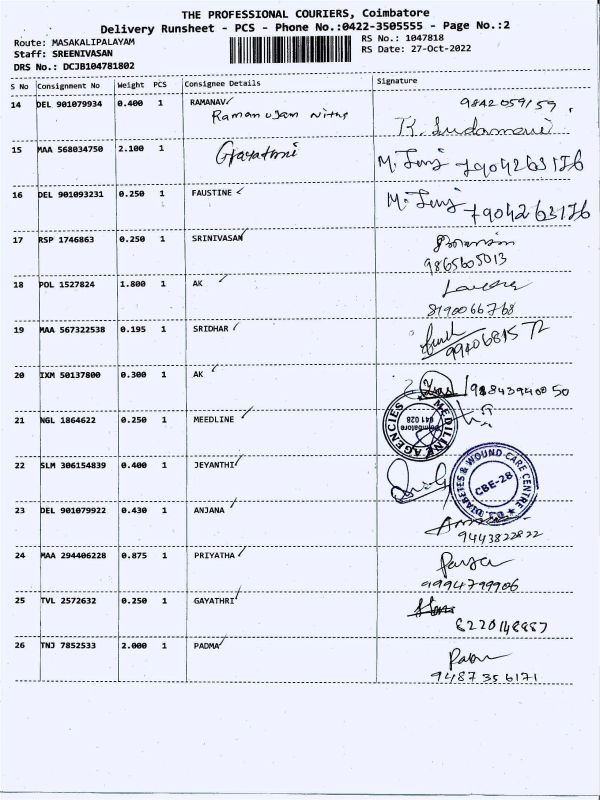 THE PROFESSIONAL COURIERS, Coimbatore
Delivery Runsheet - PCS - Phone No.:0422-3505555 - Page No.:2
Route: MASAKALIPALAYAM RS No.: 1047818
Staff: SREENIVASAN RS Date: 27-Oct-2022
DRS No.: DCJB104781802
S No Consignment No Weight PCS Consignee Details Signature
14 DEL 901079934 0.400 1 RAMANAV 9842059159
Ramanujam
15 MAA 568034750 2.100 1 Gayathri 7904263176
16 DEL 901093231 0.250 1 FAUSTINE 7904263176
17 RSP 1746863 0.250 1 SRINIVASAN
9865605013
18 POL 1527824 1.800 1 AK
8190066768
19 MAA 567322538 0.195 1 SRIDHAR
9940681572
20 IXM 50137800 0.300 1 AK
21 NGL 1864622 0.250 1 MEEDLINE
MEDILINE AGENCIES
Coimbatore
641 028
22 SLM 306154839 0.400 1 JEYANTHI
DIABETES & WOUND CARE CENTRE
CBE-28
23 DEL 901079922 0.430 1 ANJANA
9443822822
24 MAA 294406228 0.875 1 PRIYATHA
9994799906
25 TVL 2572632 0.250 1 GAYATHRI
8220148887
26 TNJ 7852533 2.000 1 PADMA
9487356171